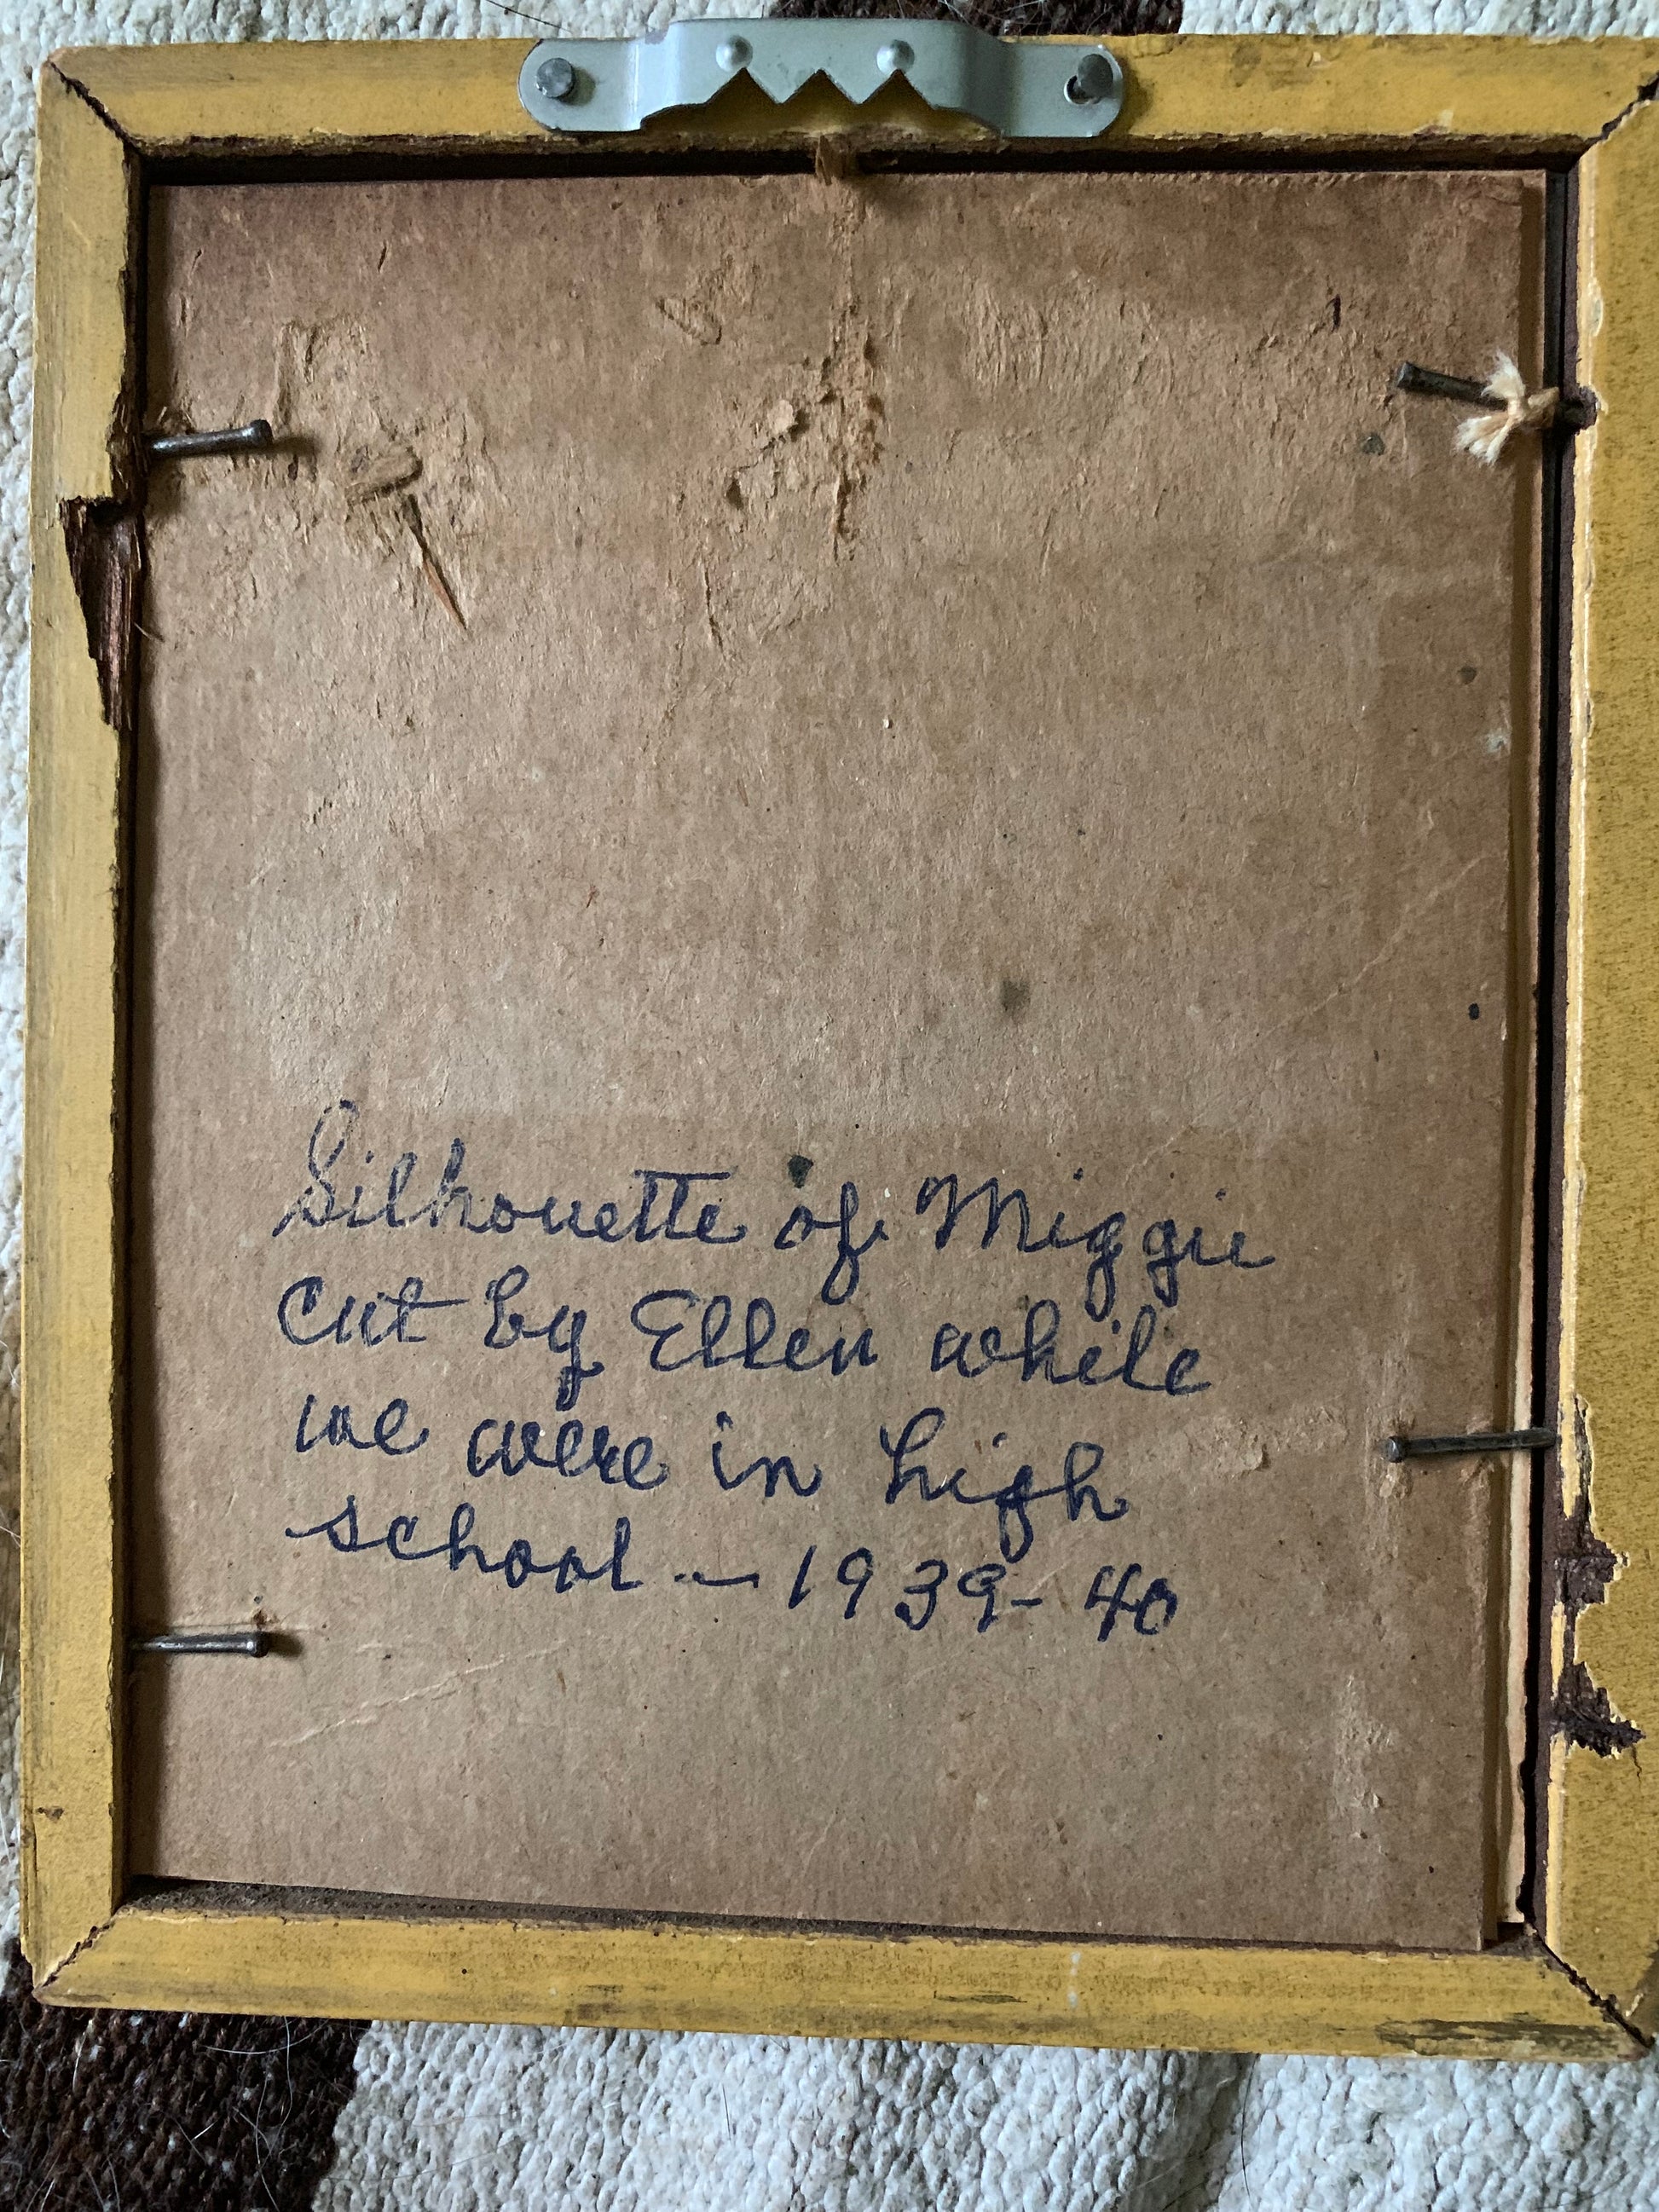 Silhouette of Miggie
cut by Ellen while
we were in high
school — 1939-40